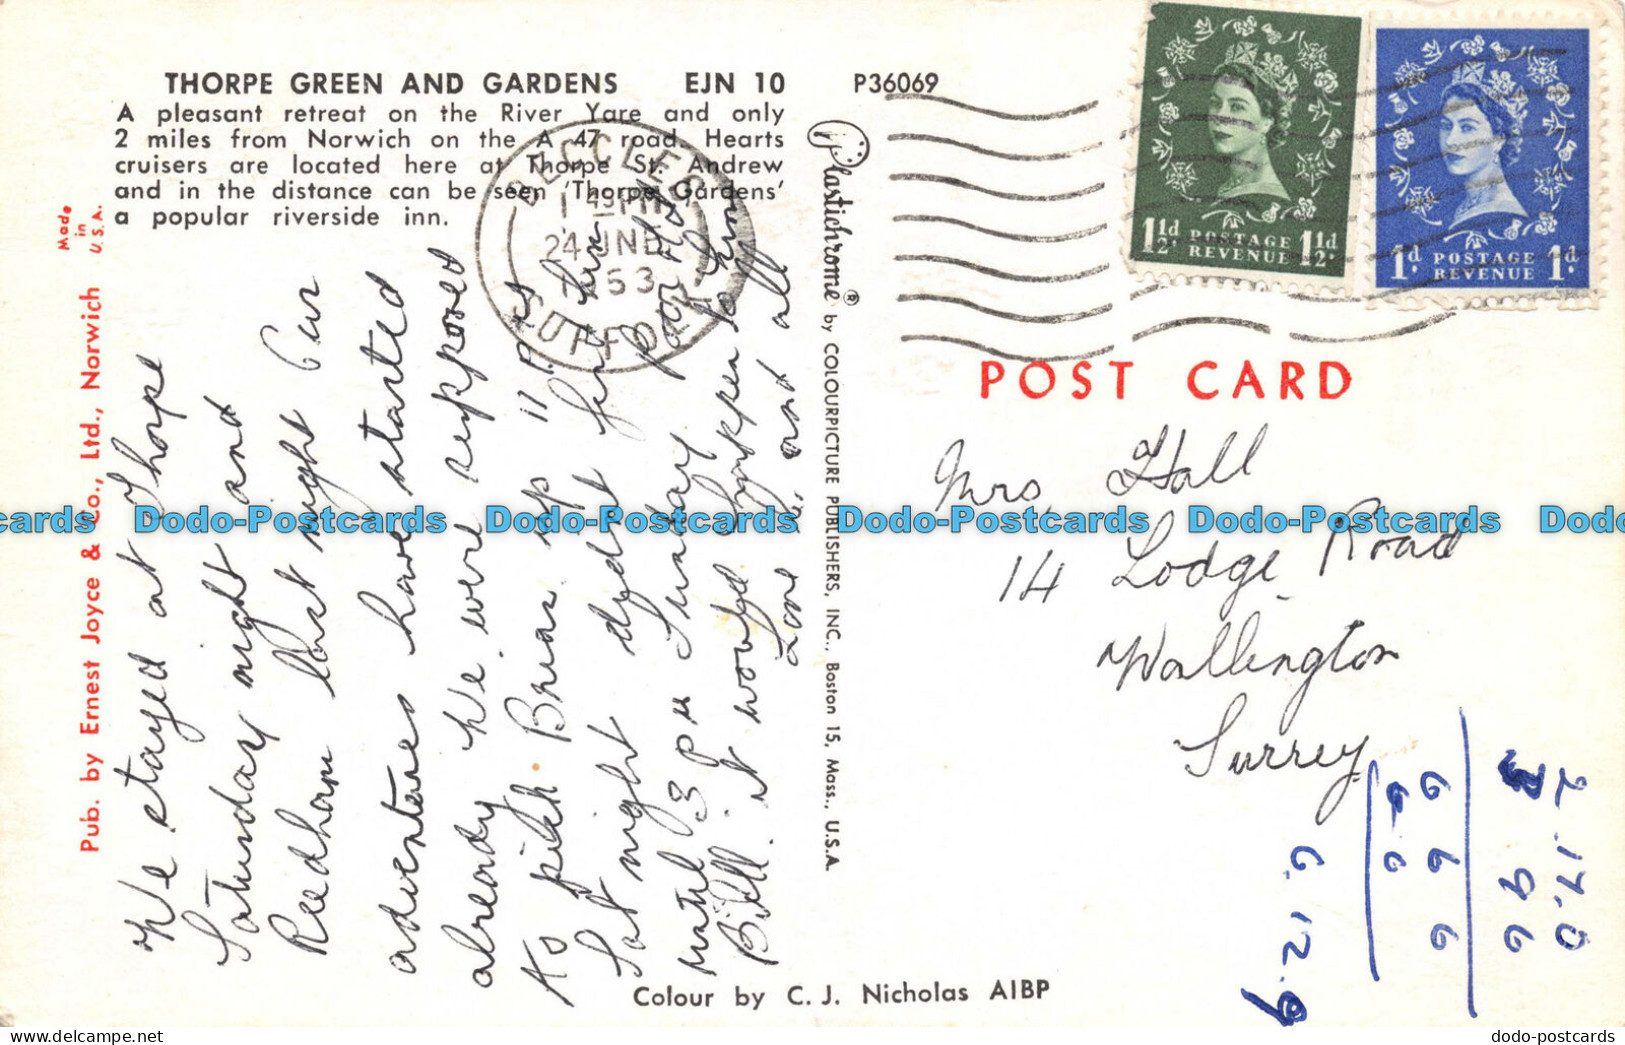 THORPE GREEN AND GARDENS EJN 10 P36069
A pleasant retreat on the River Yare and only
2 miles from Norwich on the A 47 road. Hearts
cruisers are located here at Thorpe St. Andrew
and in the distance can be seen 'Thorpe Gardens'
a popular riverside inn.
Made
in
U.S.A.
Pub. by Ernest Joyce & Co., Ltd., Norwich
We stayed at Thorpe
Saturday night and
Reedham last night Our
adventures have started
already We were supposed
to pick Brian up 11.
Sat night didnt find him
until 3 pm Sunday poor old
Bill. it would happen to him
Love, and all
Colour by C. J. Nicholas AIBP
Plastichrome ® by COLOURPICTURE PUBLISHERS, INC., Boston 15, Mass., U.S.A.
BECCLES
24 JNE
SUFFOLK
1½d POSTAGE REVENUE 1½d.
1d POSTAGE REVENUE 1d.
POST CARD
Mrs, Hall
14 Lodge Road
Wallington
Surrey
2.17.0
9 6
6 6 6
6.12.9
Dodo-Postcards Dodo-Postcards Dodo-Postcards Dodo-Postcards
dodo-postcards